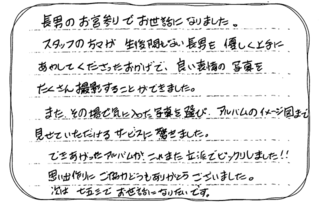 長男のお宮参りでお世話になりました。
スタッフの方々が 生後間もない長男を 優しく上手に
あやしてくださったおかげで、良い表情の写真を
たくさん撮影することができました。
また、その場で気に入った写真を選び、アルバムのイメージ図まで
見せていただけるサービスに驚きました。
できあがったアルバムが、これまた立派でビックリしました!!
思い出作りにご協力どうもありがとうございました。
次は七五三でお世話になりたいです。